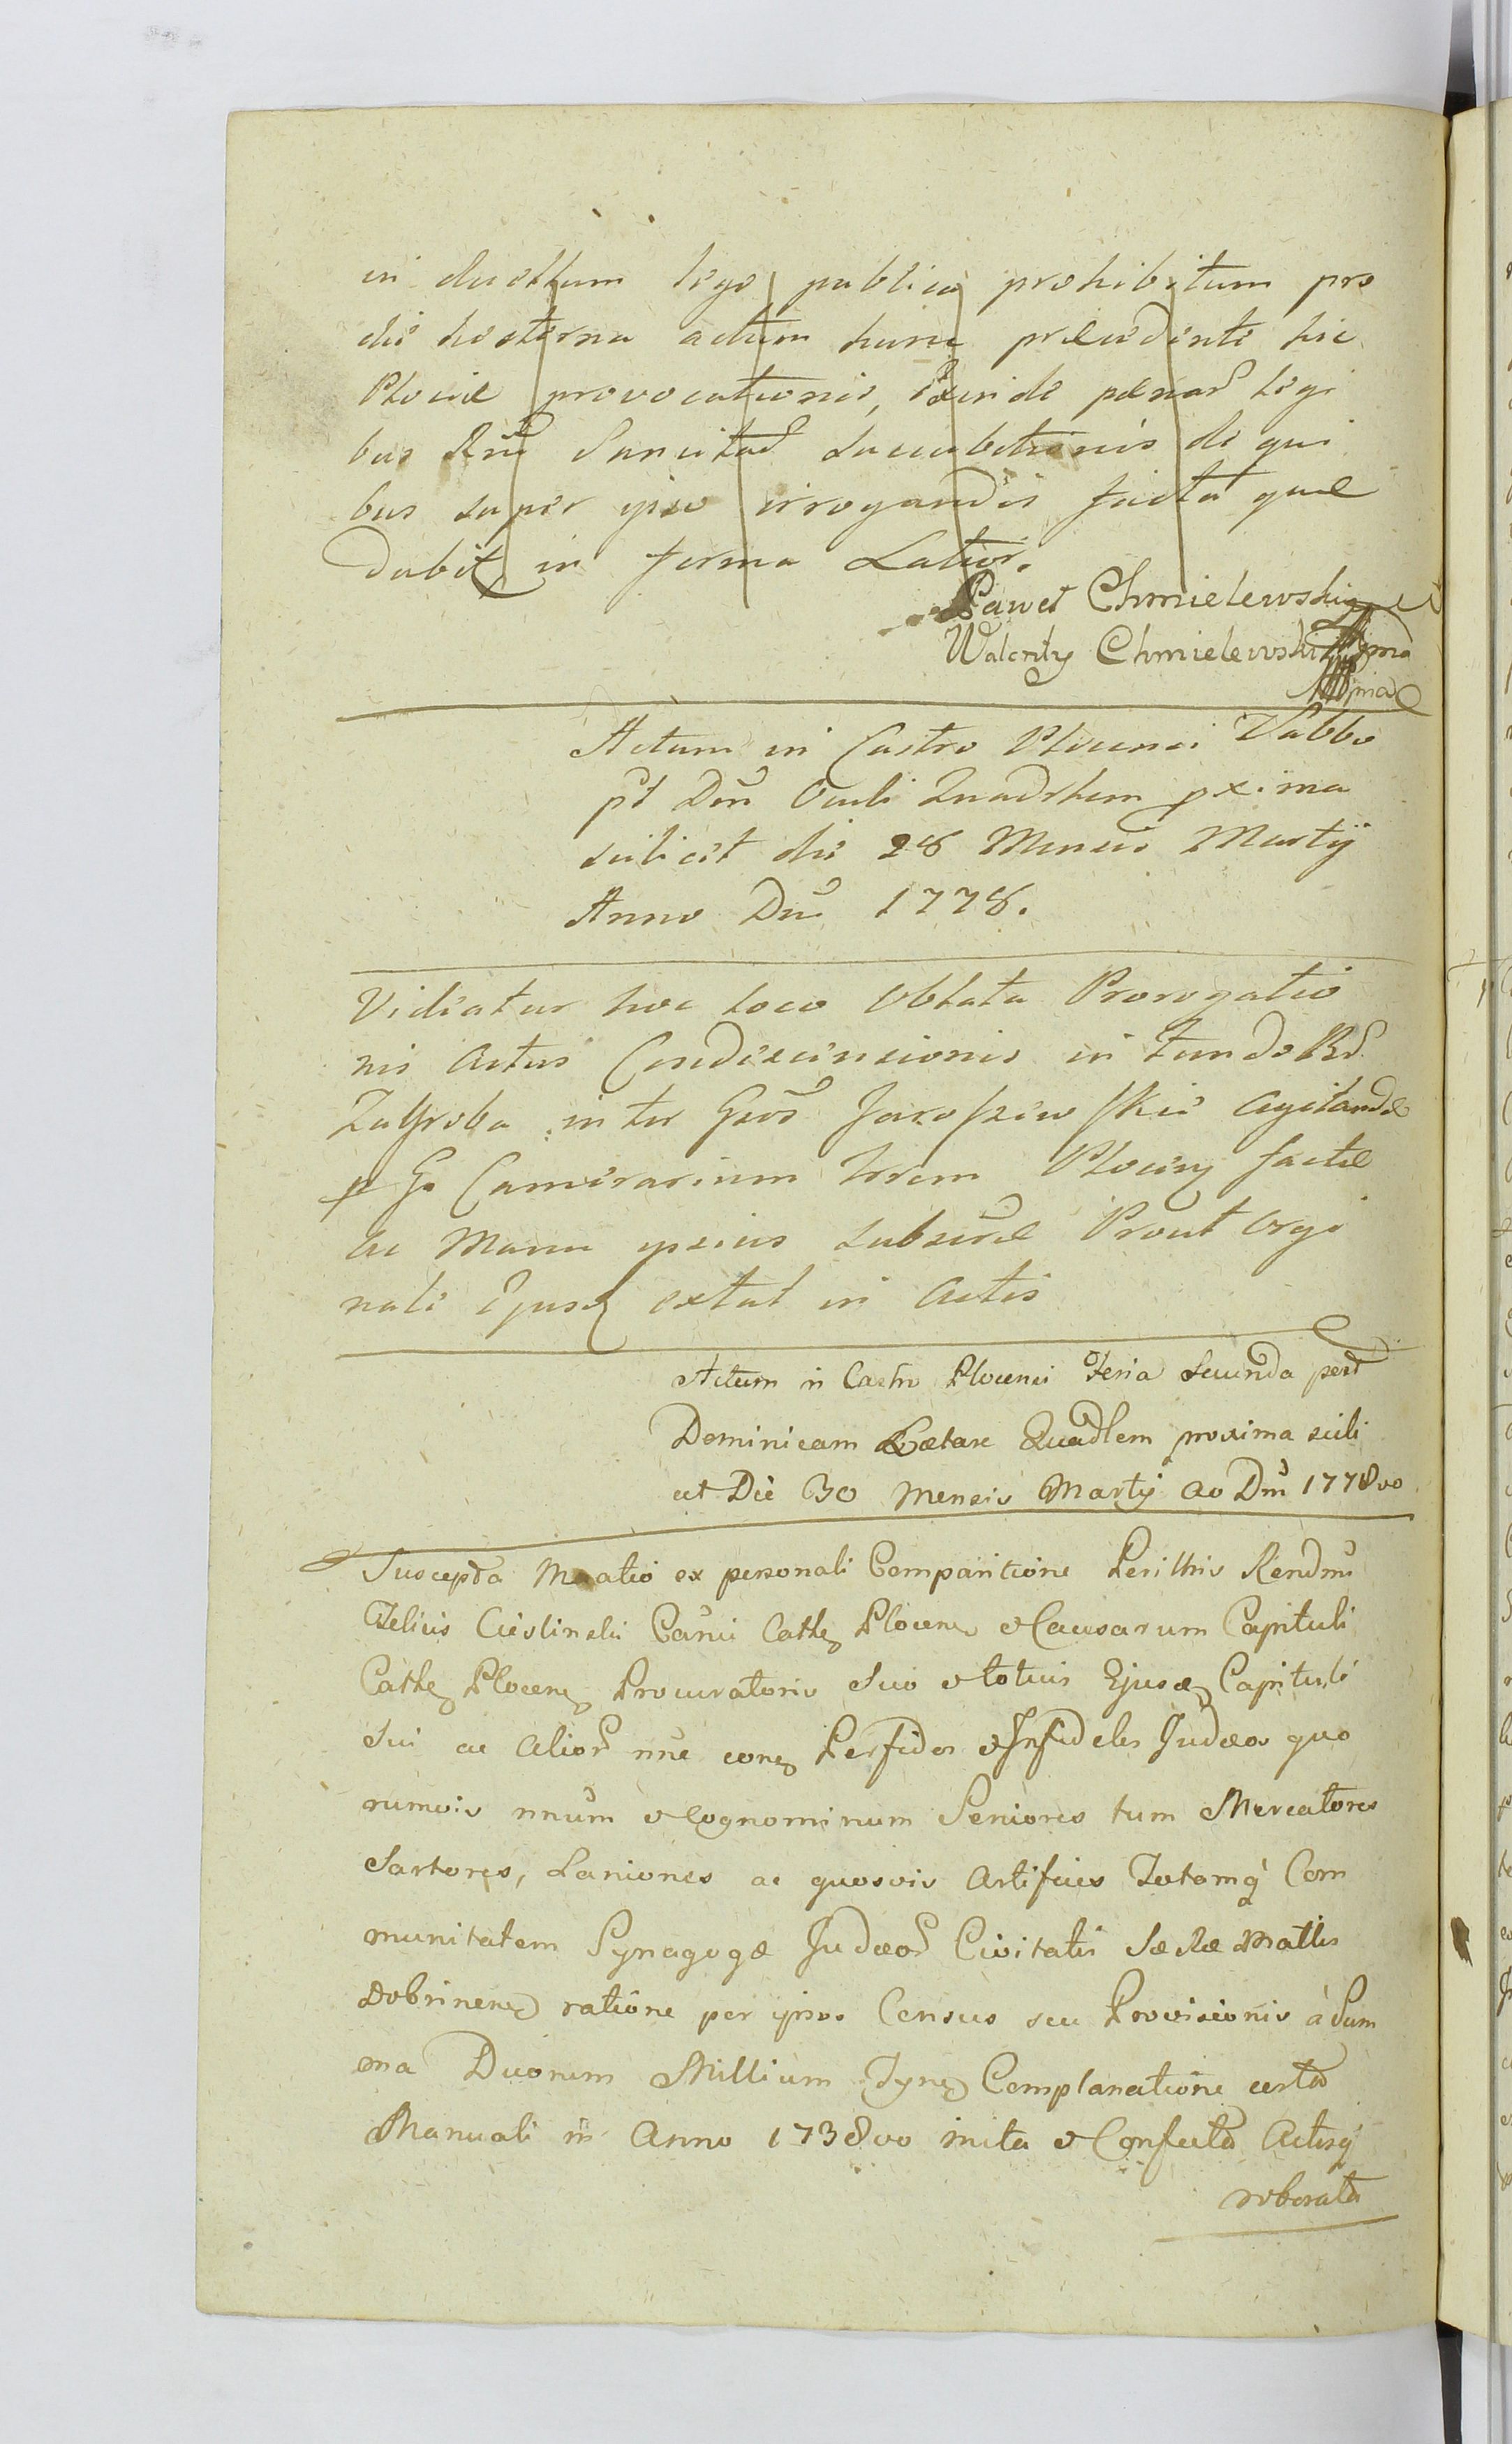 in duellum lege publica prohibitum pro
die hesterna actum hunc præcedente hic
Plociæ provocationis, Exinde pænaꝝ legi
bus Rñi Sancitaꝝ Succubitionis de qui
bus super ipso irrogandis facta quæ
dabit in forma Latior.
Paweł Chmielewski
Walenty Chmielewski mp
mpria
Actum in Castro Plocensi Sabbo
pt Dñi Oculi Quadrlem pxima
scilicet die 28 Mensis Martÿ
Anno Dñi 1778.
Videatur hoc loco Oblata Prorogatio
nis Actus Condescensionis in Fundo Bꝝ
Zagroba inter Gsos Jaroszewskie Agitandæ
p Gm Camerarium Trrem Plocen factæ
ac Manu ipsius Subscræ Prout Orgi
nale Ejusd extat in Actis
Actum in Castro Plocensi Feria Secunda post
Dominicam Lætare Quadlem proxima scili
cet Die 30 Mensis Martÿ Ao Dni 1778vo
Suscepta Mãatio ex personali Comparitione Perillris Rendmi
Felicis Cieslinskii Canci Cathe Plocens & Causarum Capituli
Cathe Plocens Procuratoris Suo & totius Ejusd Capituli
Sui ac Alioꝝ nne cone Perfidos & Infideles Judæos quo
rumvis nnum & Cognominum Seniores tum Mercatores
Sartores, Laniones ac quosvis Artifices Totamq Com
munitatem Synagogæ Judæoꝝ Civitatis Sæ Ræ Mattis
Dobrinens ratione per ipsos Census seu Provisionis à Sum
ma Duorum Millium Tynf Complanatione certa
Manuali in Anno 1738vo inita & Confecta Actisq
roborata